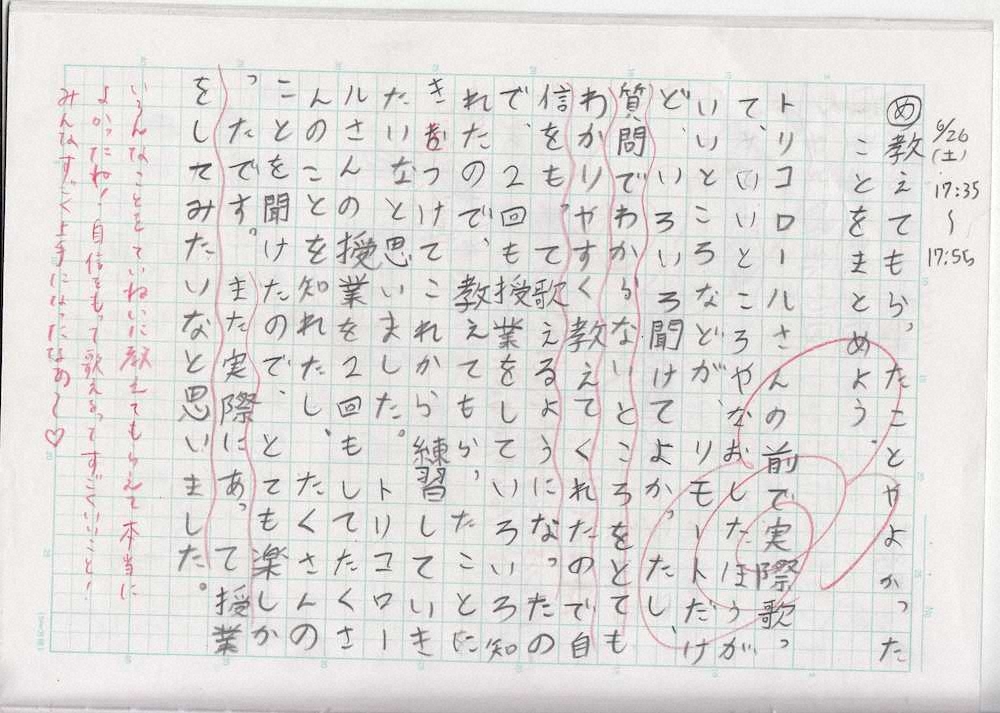 6/26
(土)
17:35
〜
17:55
め 教えてもらったことやよかった
ことをまとめよう。
トリコロールさんの前で実際歌っ
て、いいところやなおしたほうが
いいところなどが、リモートだけ
ど、いろいろ聞けてよかったし、
質問でわからないところをとても
わかりやすく教えてくれたので自
信をもって歌えるようになったの
で、2回も授業をしていろいろ知
れたので、教えてもらったことに
きをつけてこれから練習していき
たいなと思いました。トリコロー
ルさんの授業を2回もしてたくさ
んのことを知れたし、たくさんの
ことを聞けたので、とても楽しか
ったです。また実際にあって授業
をしてみたいなと思いました。
いろんなことをていねいに教えてもらえて本当に
よかったね！自信をもって歌えるってすごくいいこと！
みんなすごく上手になったなあ〜♡